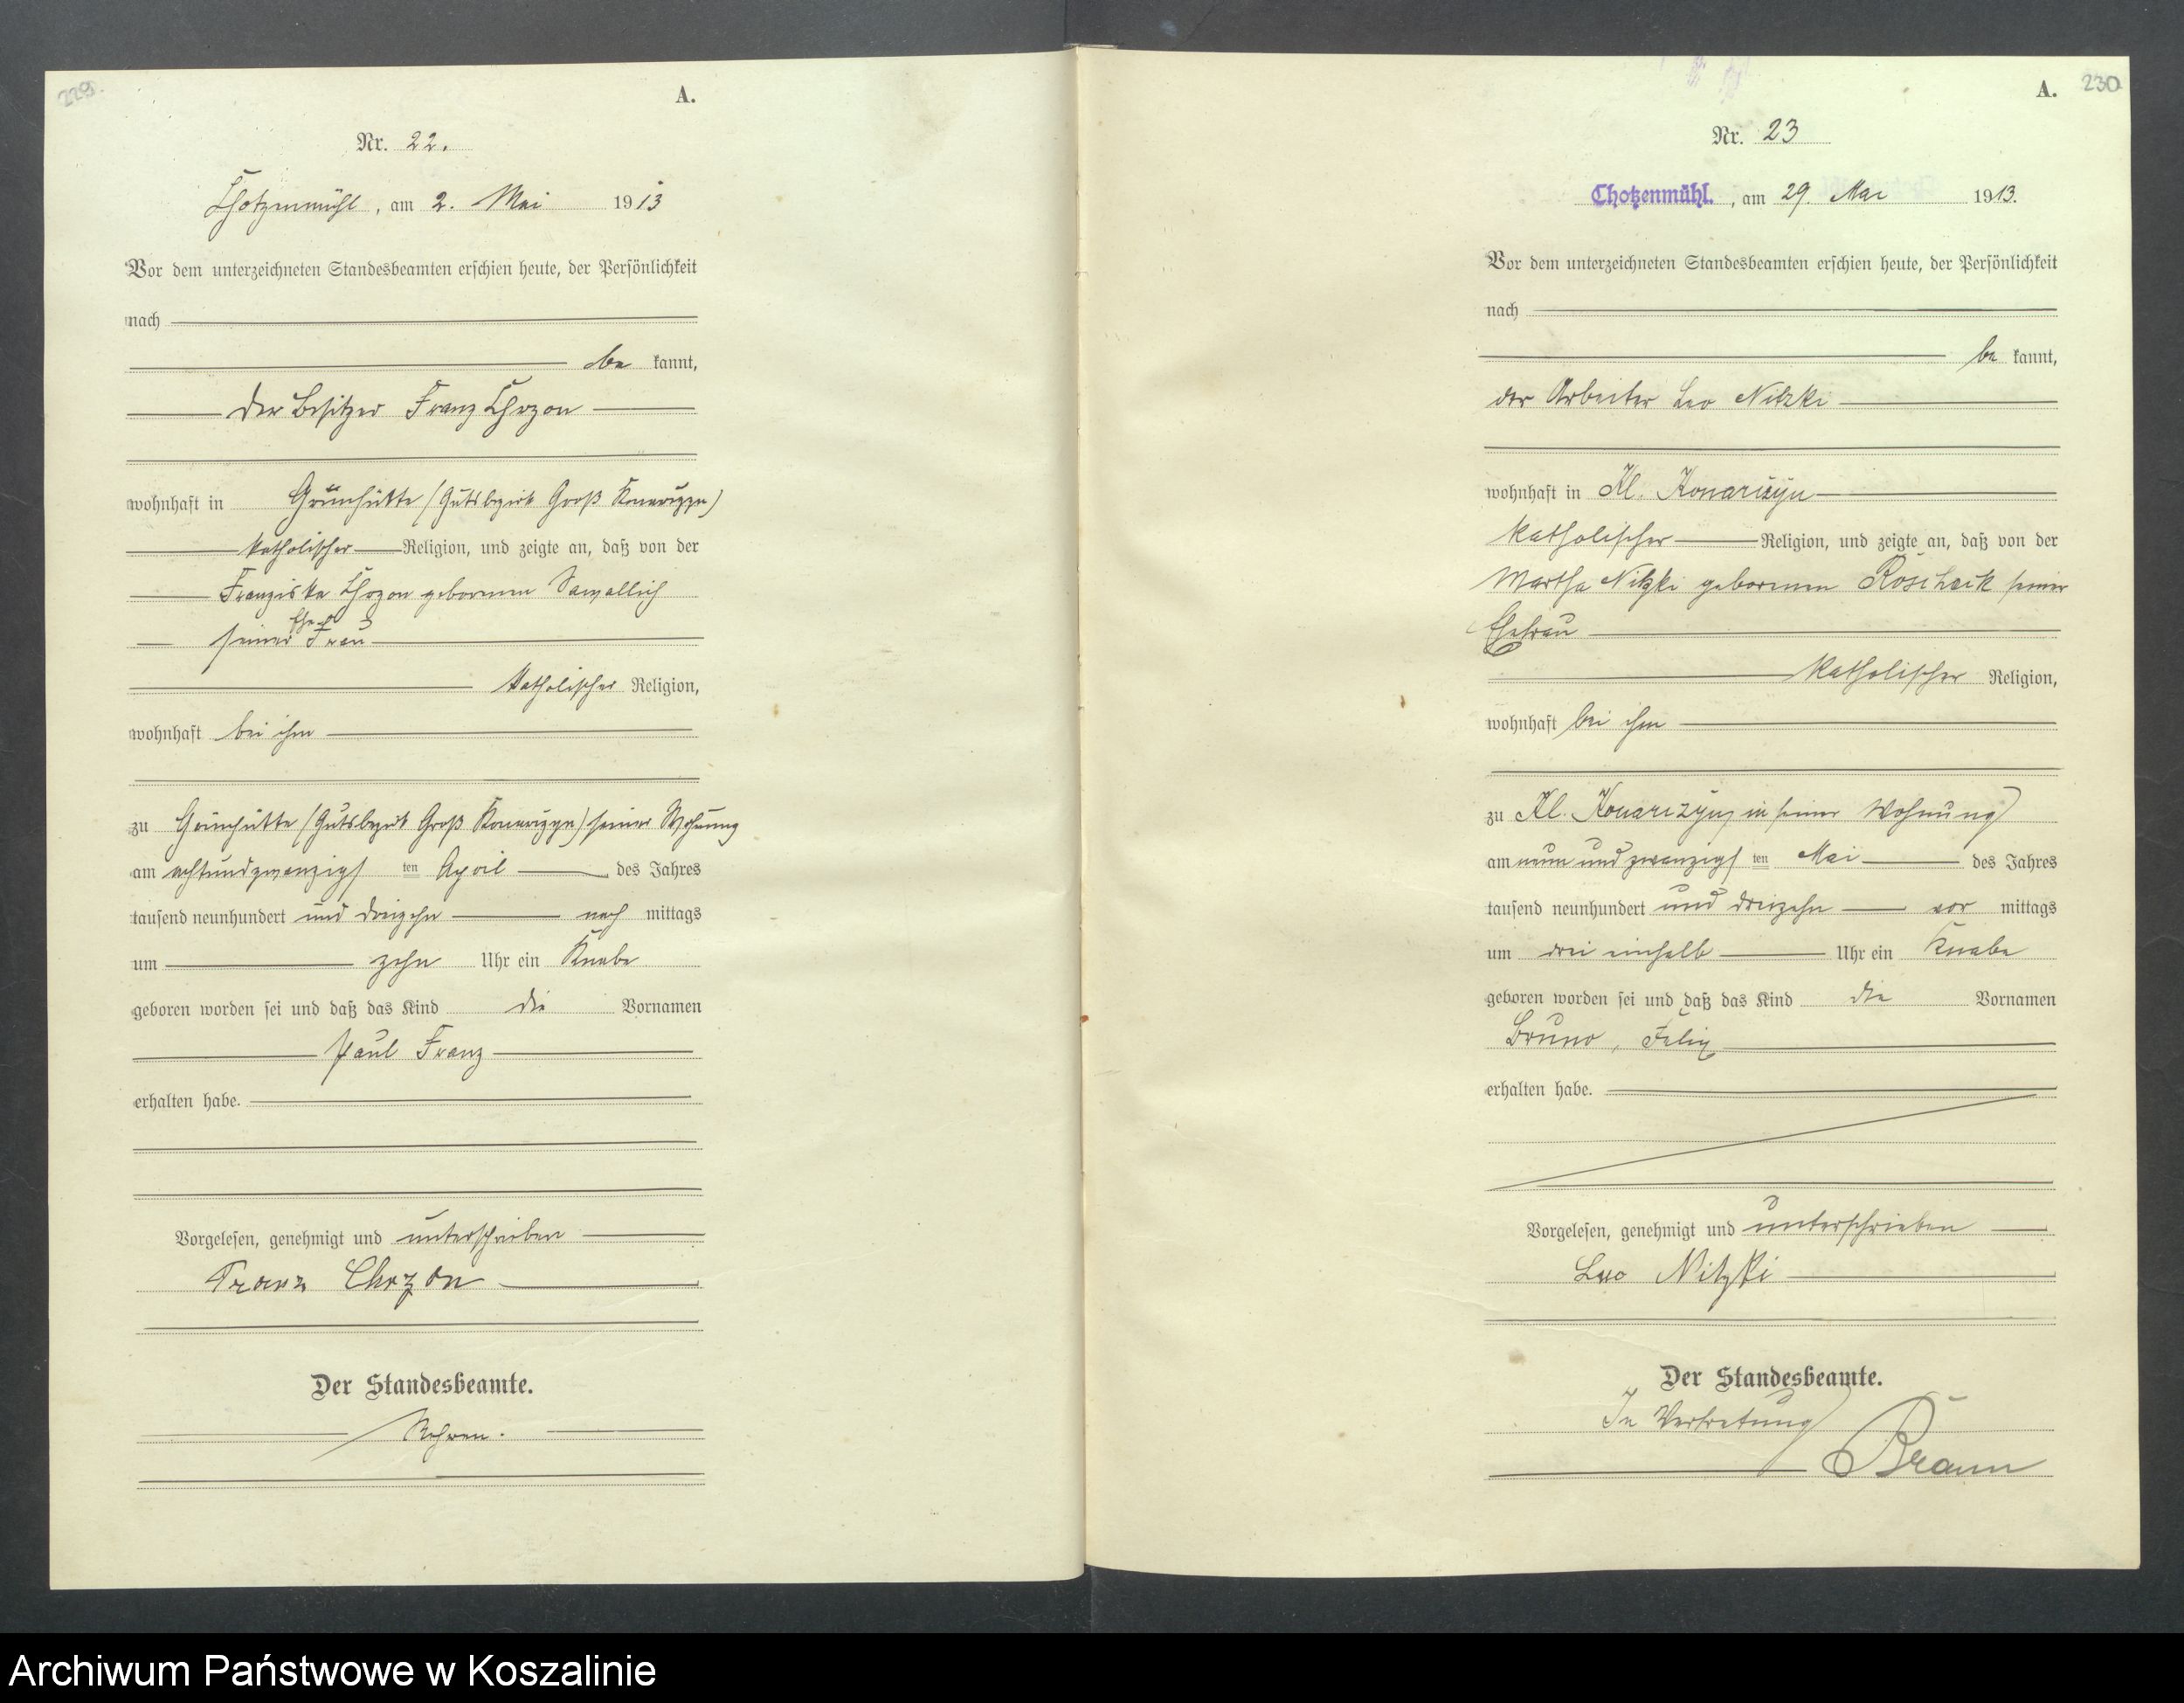 229.
A.
Nr. 22.
Chotzenmühl, am 2. Mai 1913
Vor dem unterzeichneten Standesbeamten erschien heute, der Persönlichkeit
nach
be kannt,
der Besitzer Franz Chrzon
wohnhaft in Grünhütte (Gutsbezirk Groß Konarzyn)
katholischer Religion, und zeigte an, daß von der
Franziska Chrzon geborenen
seiner Ehe Frau
katholischer Religion,
wohnhaft bei ihm
zu Grünhütte (Gutsbezirk Groß Konarzyn) seiner Wohnung
am achtundzwanzigsten April des Jahres
tausend neunhundert und dreizehn nach mittags
um zehn Uhr ein Knabe
geboren worden sei und daß das Kind die Vornamen
Paul Franz
erhalten habe.
Vorgelesen, genehmigt und unterschrieben
Franz Chrzon
Der Standesbeamte.
230
A.
Nr. 23
Chotzenmühl. , am 29. Mai 1913.
Vor dem unterzeichneten Standesbeamten erschien heute, der Persönlichkeit
nach
be kannt,
der Arbeiter Leo Nitzki
wohnhaft in Kl. Konarczyn
katholischer Religion, und zeigte an, daß von der
Martha Nitzki geborenen seiner
Ehefrau
katholischer Religion,
wohnhaft bei ihm
zu Kl. Konarczyn, in seiner Wohnung
am neun und zwanzigsten Mai des Jahres
tausend neunhundert und dreizehn vor mittags
um drei einhalb Uhr ein Knabe
geboren worden sei und daß das Kind die Vornamen
Bruno, Felix
erhalten habe.
Vorgelesen, genehmigt und unterschrieben
Leo Nitzki
Der Standesbeamte.
In Vertretung
Braun
Archiwum Państwowe w Koszalinie